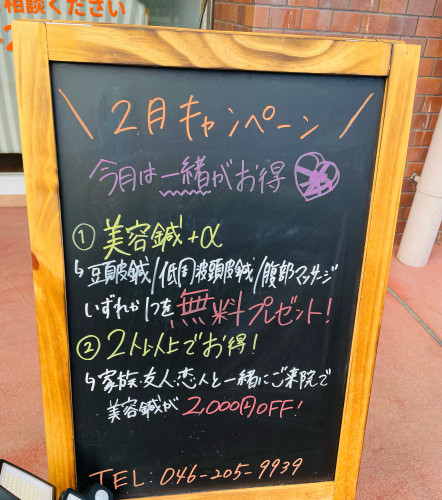 相談ください
\ 2月キャンペーン /
今月は一緒がお得
① 美容鍼+α
↳豆頭皮鍼/低周波頭皮鍼/腹部マッサージ
いずれか1つを無料プレゼント!
② 2人以上でお得!
↳家族・友人・恋人と一緒にご来院で
美容鍼が 2,000円OFF!
TEL: 046-205-9939